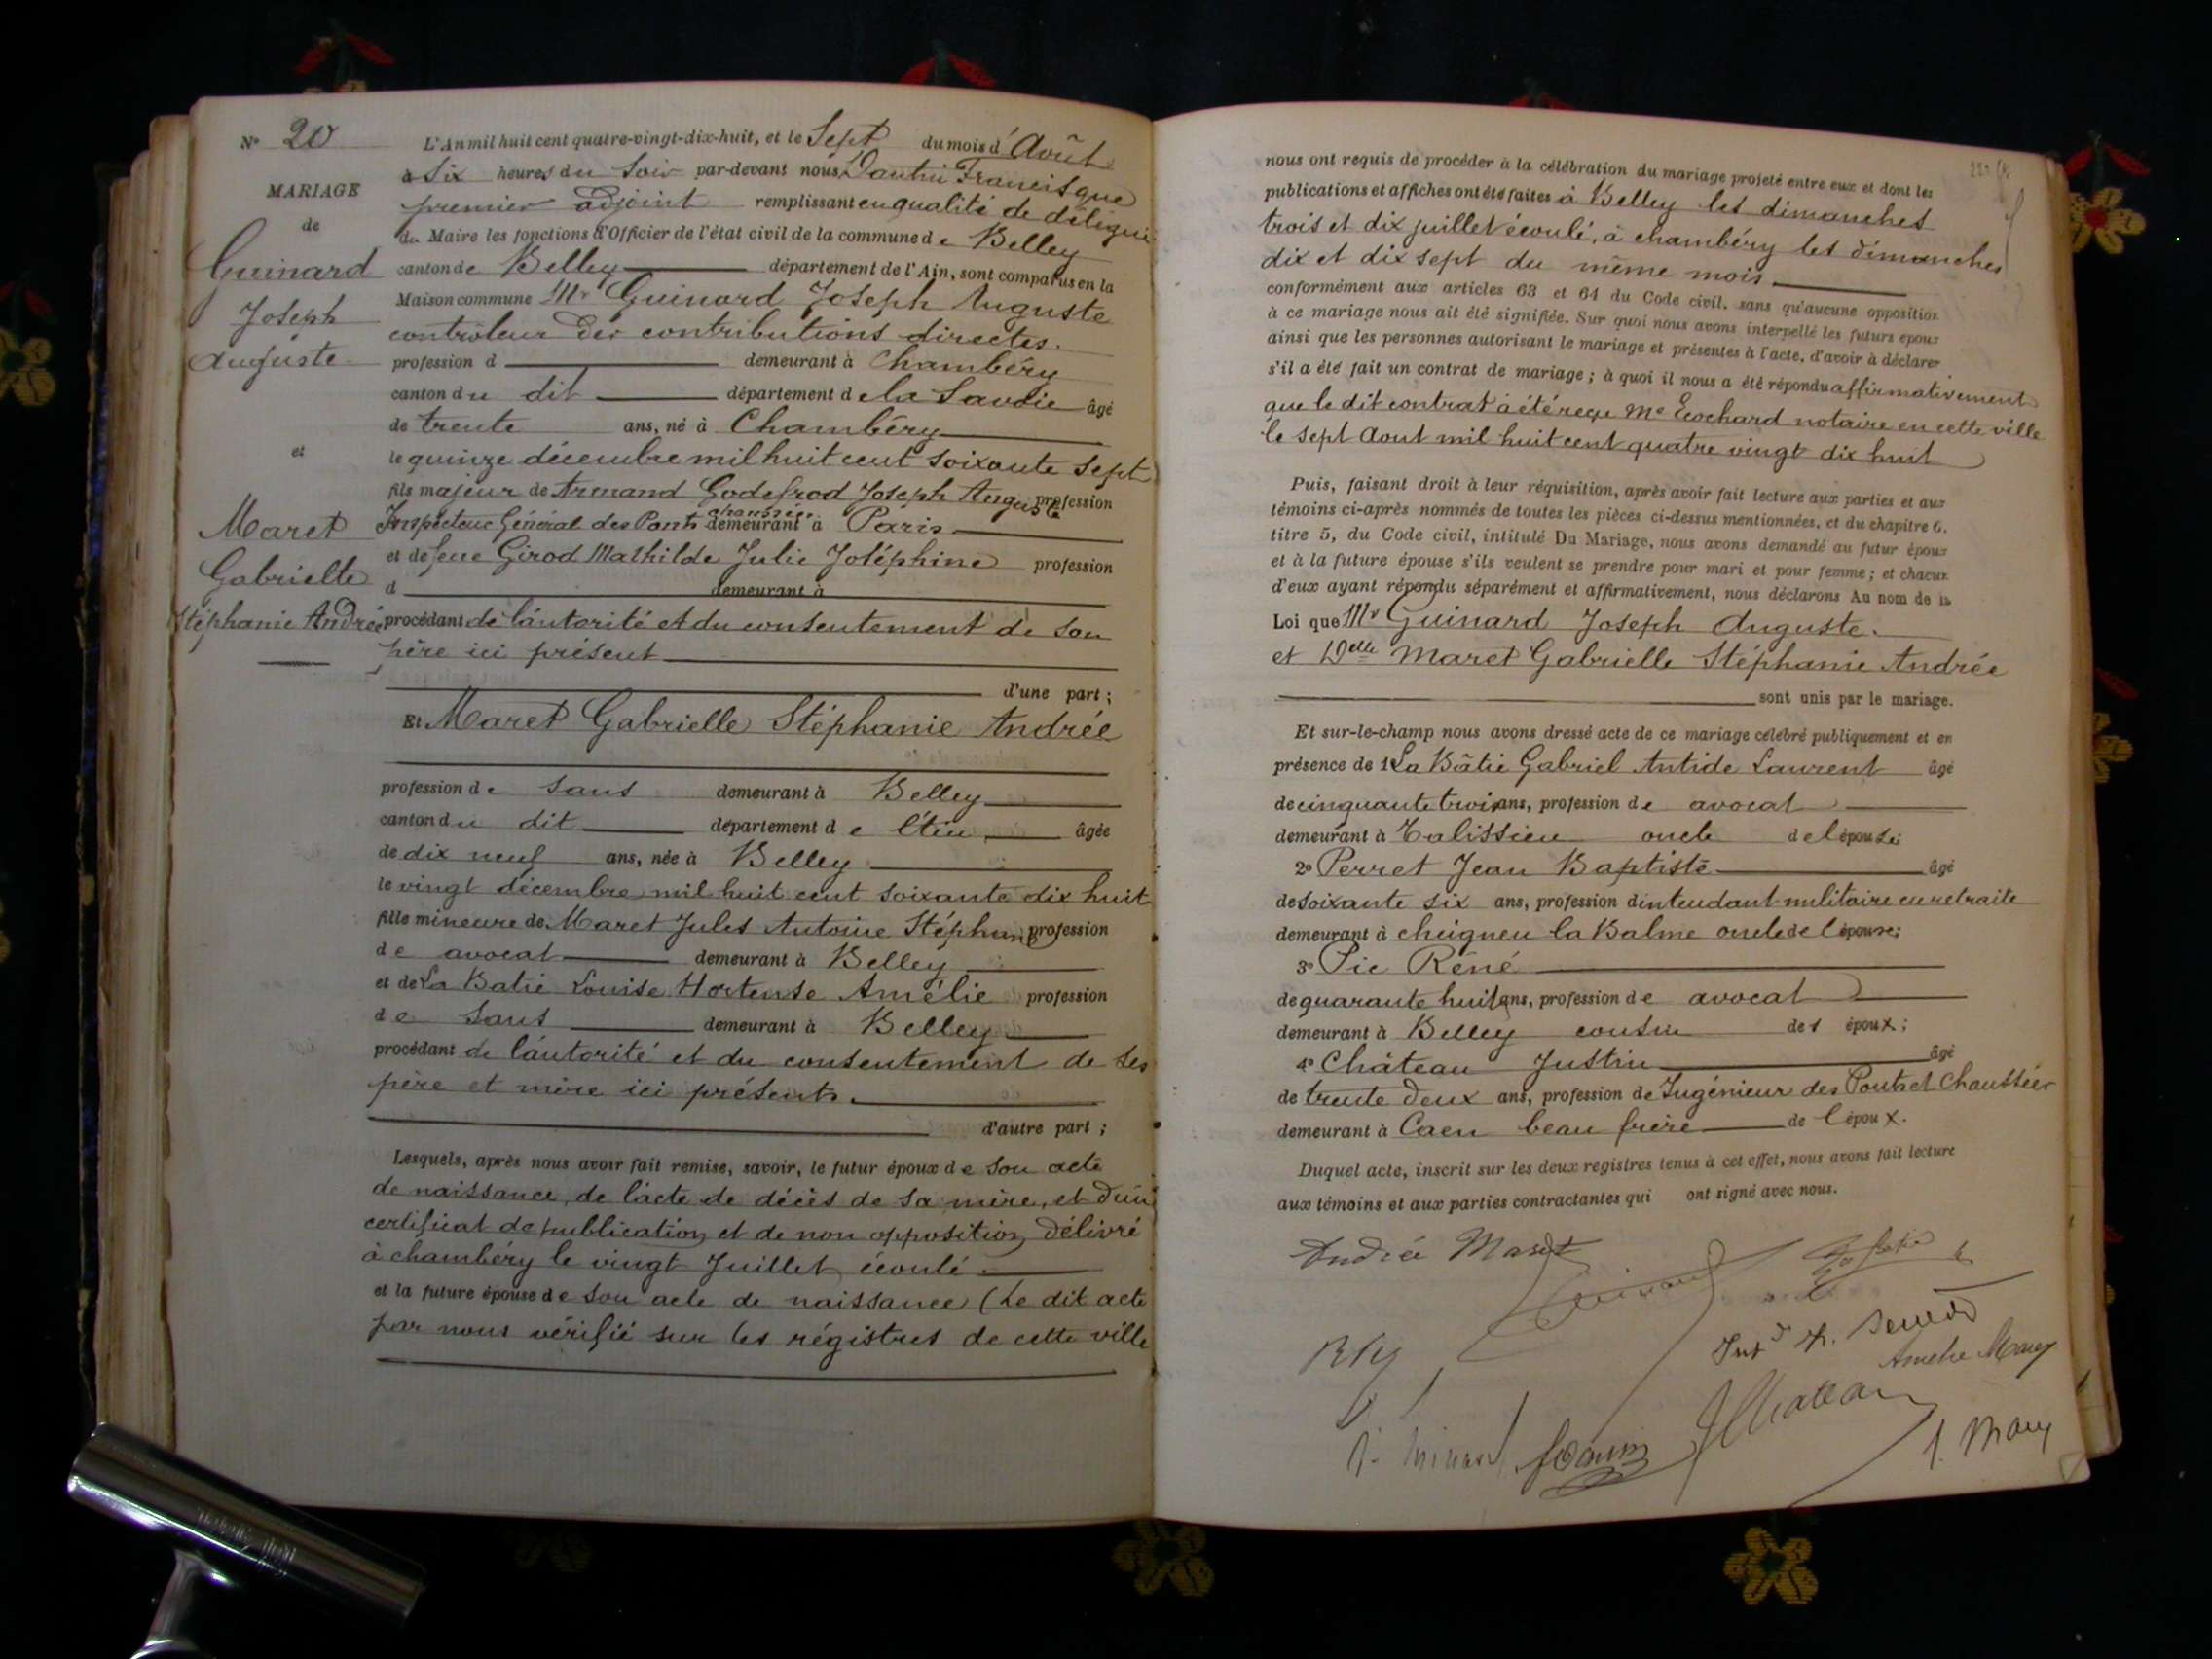 N° 20
MARIAGE
de
Guinard
Joseph
Auguste
et
Maret
Gabrielle
Stéphanie Andrée
L'An mil huit cent quatre-vingt-dix-huit, et le Sept du mois d'Août
à Six heures du Soir par-devant nous Francisque
premier adjoint remplissant en qualité de délégué
du Maire les fonctions d'Officier de l'état civil de la commune de Belley
canton de Belley département de l'Ain, sont comparus en la
Maison commune Mr Guinard Joseph Auguste
contrôleur des contributions directes.
profession d demeurant à Chambéry
canton du dit département de la Savoie âgé
de trente ans, né à Chambéry
le quinze décembre mil huit cent soixante sept
fils majeur de Armand Godefrod Joseph Auguste profession
Inspecteur Général des Ponts chaussées demeurant à Paris
et de feue Girod Mathilde Julie Joséphine profession
d demeurant à
procédant de l'autorité et du consentement de son
père ici présent
d'une part ;
Et Maret Gabrielle Stéphanie Andrée
profession de sans demeurant à Belley
canton du dit département de l'Ain âgée
de dix neuf ans, née à Belley
le vingt décembre mil huit cent soixante dix huit
fille mineure de Maret Jules Antoine Stéphane profession
de avocat demeurant à Belley
et de La Batie Louise Hortense Amélie profession
de sans demeurant à Belley
procédant de l'autorité et du consentement de ses
père et mère ici présents.
d'autre part ;
Lesquels, après nous avoir fait remise, savoir, le futur époux de son acte
de naissance, de l'acte de décès de sa mère, et d'un
certificat de publication et de non opposition délivré
à chambéry le vingt Juillet écoulé
et la future épouse de son acte de naissance (Le dit acte
par nous vérifié sur les régistres de cette ville
nous ont requis de procéder à la célébration du mariage projeté entre eux et dont les
publications et affiches ont été faites à Belley les dimanches
trois et dix juillet écoulé, à chambéry les dimanches
dix et dix sept du même mois
conformément aux articles 63 et 64 du Code civil, sans qu'aucune opposition
à ce mariage nous ait été signifiée. Sur quoi nous avons interpellé les futurs époux
ainsi que les personnes autorisant le mariage et présentes à l'acte, d'avoir à déclarer
s'il a été fait un contrat de mariage ; à quoi il nous a été répondu affirmativement
que le dit contrat a été reçu Me Ecochard notaire en cette ville
le sept Aout mil huit cent quatre vingt dix huit
Puis, faisant droit à leur réquisition, après avoir fait lecture aux parties et aux
témoins ci-après nommés de toutes les pièces ci-dessus mentionnées, et du chapitre 6.
titre 5, du Code civil, intitulé Du Mariage, nous avons demandé au futur époux
et à la future épouse s'ils veulent se prendre pour mari et pour femme ; et chacun
d'eux ayant répondu séparément et affirmativement, nous déclarons Au nom de la
Loi que Mr Guinard Joseph Auguste.
et Delle Maret Gabrielle Stéphanie Andrée
sont unis par le mariage.
Et sur-le-champ nous avons dressé acte de ce mariage célébré publiquement et en
présence de 1° La Bâtie Gabriel Antide Laurent âgé
de cinquante trois ans, profession de avocat
demeurant à Talissieu oncle de l'épouse;
2° Perret Jean Baptiste âgé
de soixante six ans, profession d'intendant militaire en retraite
demeurant à cheigneu la Balme oncle de l'épouse;
3° Pic Réné
de quarante huit ans, profession de avocat
demeurant à Belley cousin des époux ;
4° Château Justin âgé
de trente deux ans, profession de Ingénieur des Ponts et Chaussées
demeurant à Caen beau frère de l'époux.
Duquel acte, inscrit sur les deux registres tenus à cet effet, nous avons fait lecture
aux témoins et aux parties contractantes qui ont signé avec nous.
Andrée Maret
Guinard
Amélie Maret
JChateau